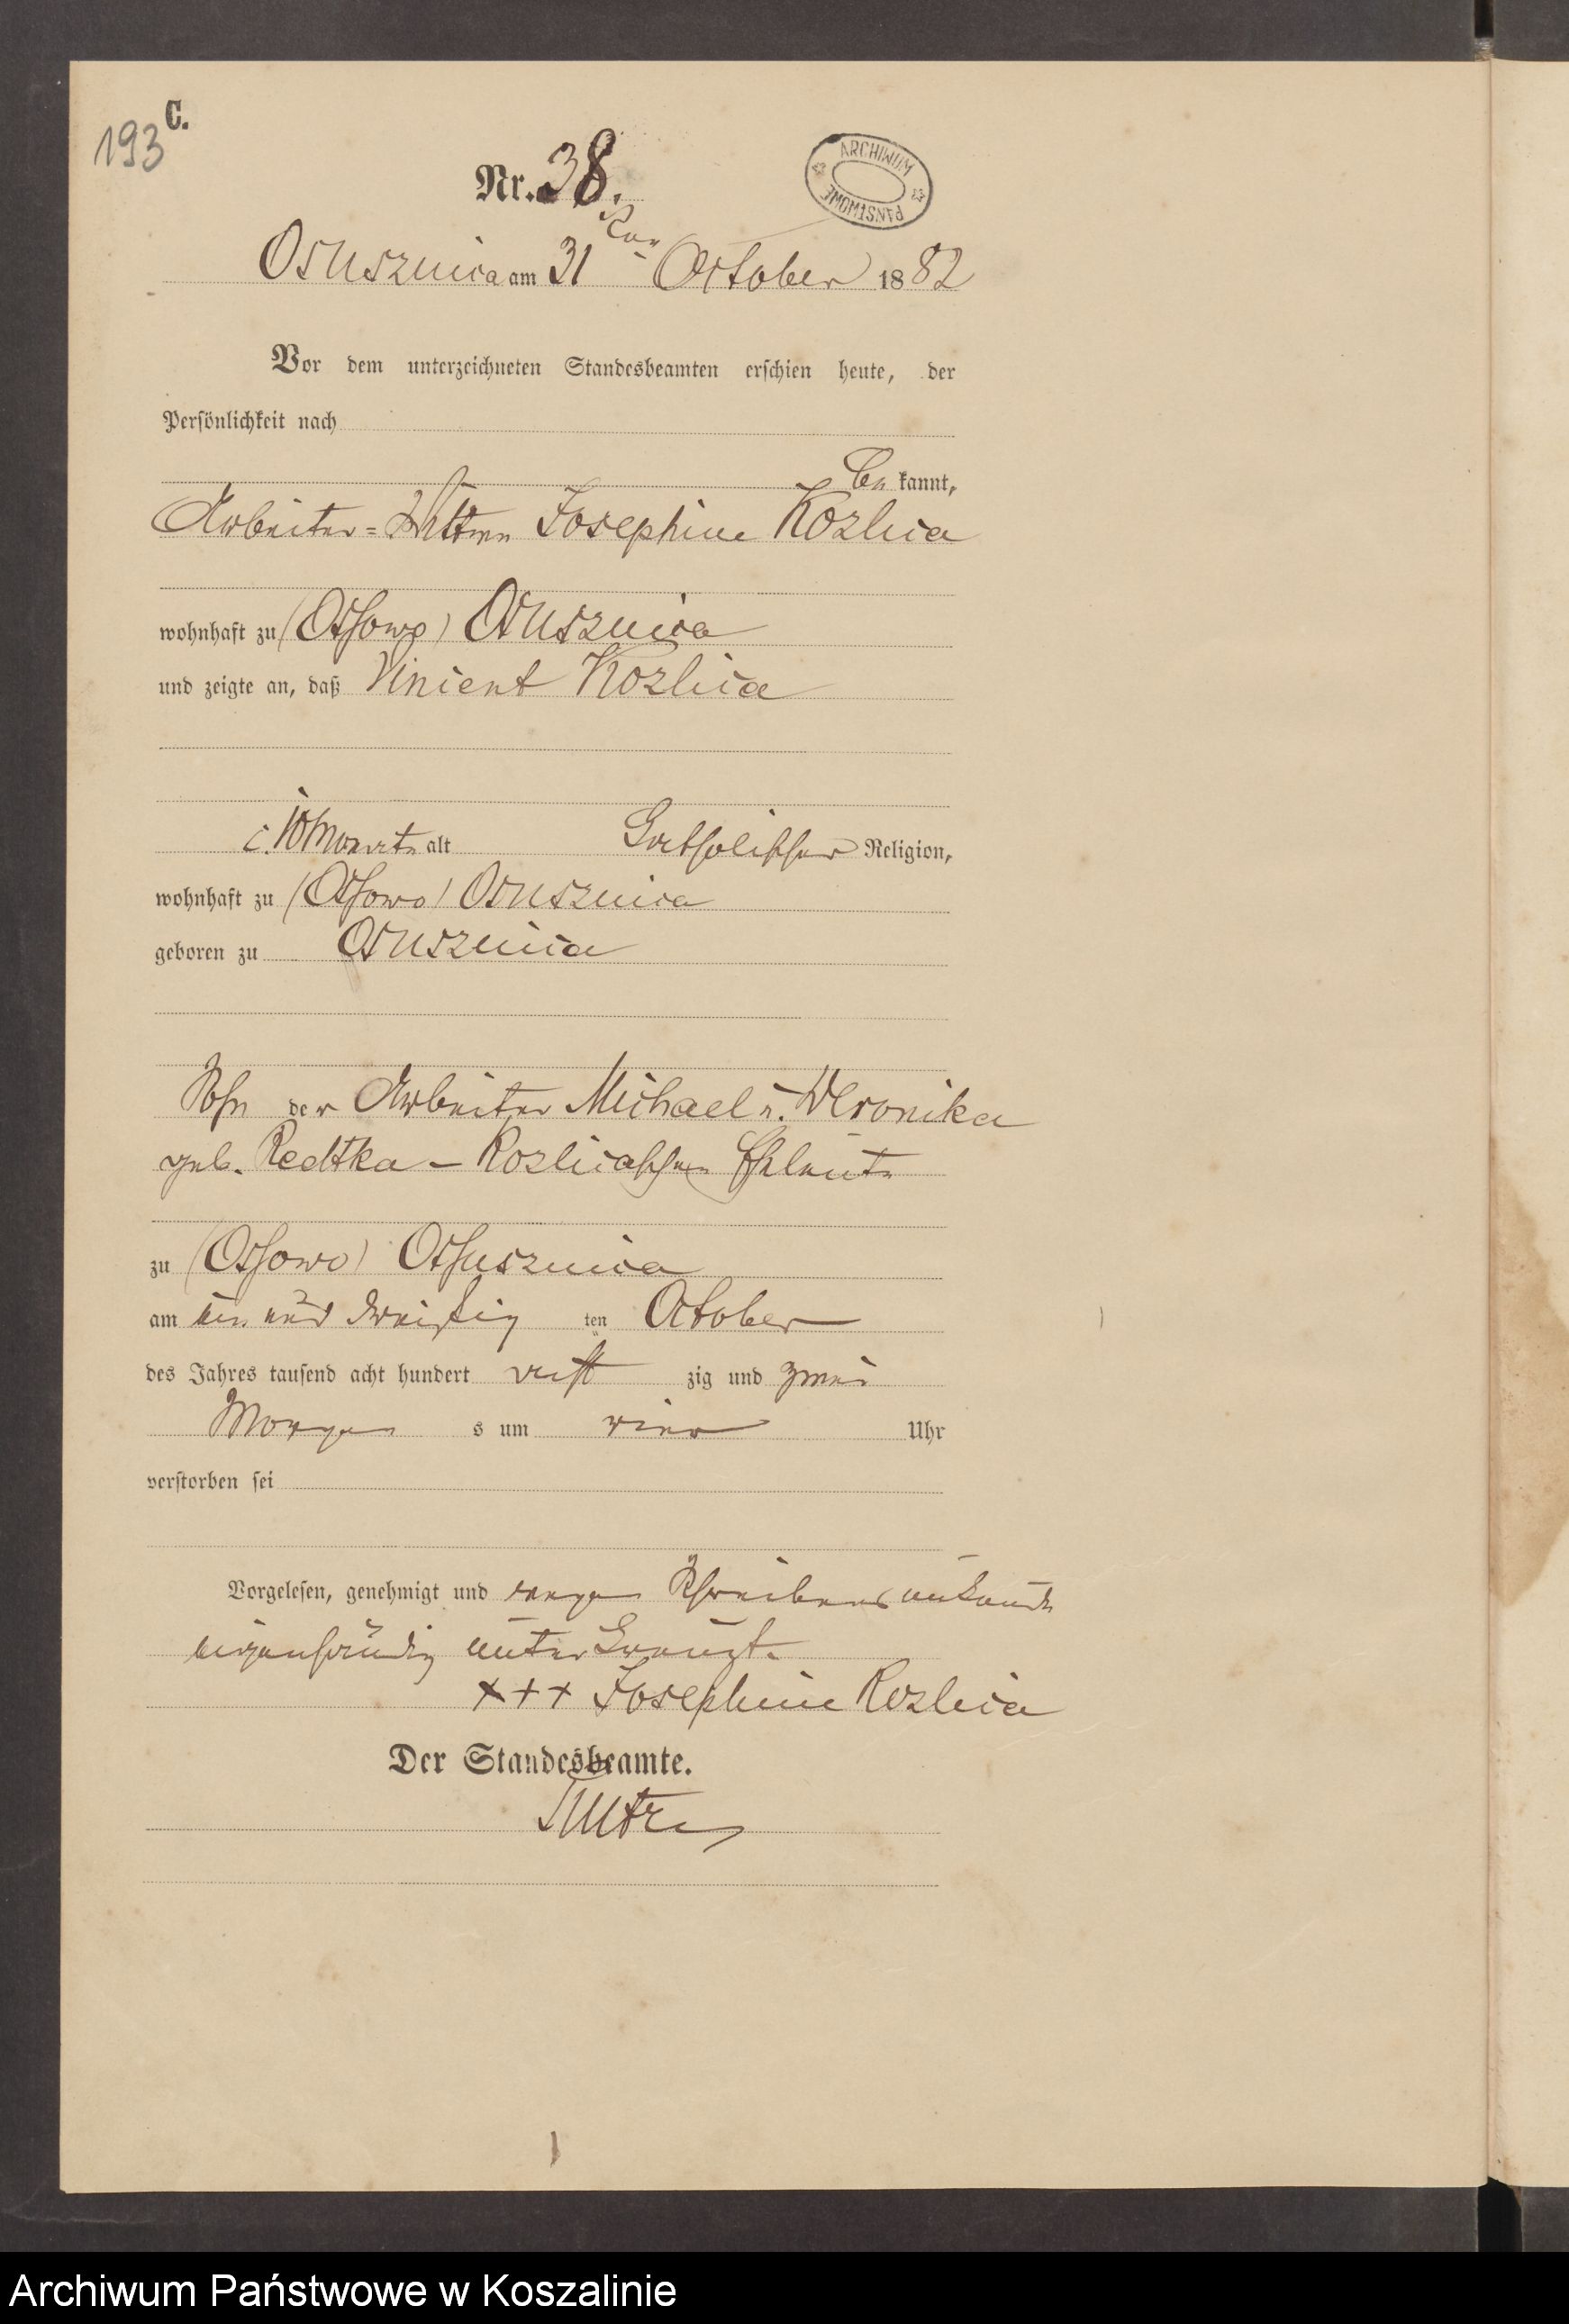 193
C.
Nr. 38.
ARCHIWUM PAŃSTWOWE
Osusznica am 31 ten October 1882
Vor dem unterzeichneten Standesbeamten erschien heute, der
Persönlichkeit nach
be kannt,
Arbeiter-Wittwe Josephine Kozlica
wohnhaft zu (Ossowo) Osusznica
und zeigte an, daß Vincent Kozlica
10 Monate alt katholischer Religion,
wohnhaft zu (Ossowo) Osusznica
geboren zu Osusznica
Sohn der Arbeiter Michael u. Veronika
geb. Redtka - Kozlicaschen Eheleute
zu (Ossowo) Ossusznica
am ein und dreißig ten October
des Jahres tausend acht hundert acht zig und zwei
Morgen s um vier Uhr
verstorben sei
Vorgelesen, genehmigt und wegen Schreibensunkunde
eigenhändig unterkreuzt.
+++ Josephine Kozlica
Der Standesbeamte.
Archiwum Państwowe w Koszalinie